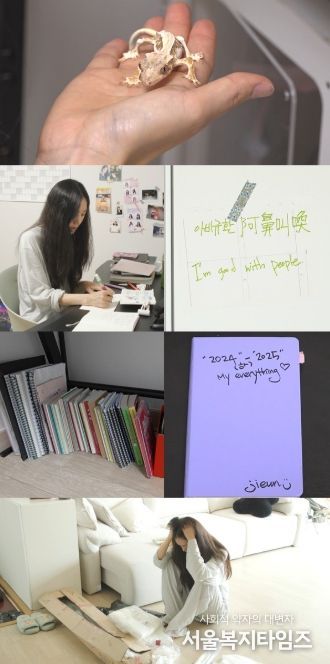 아비규환 阿鼻叫喚
I'm good with people
"2024" - "2025"
My everything♡
jieun
사회적 약자의 대변자
서울복지타임즈